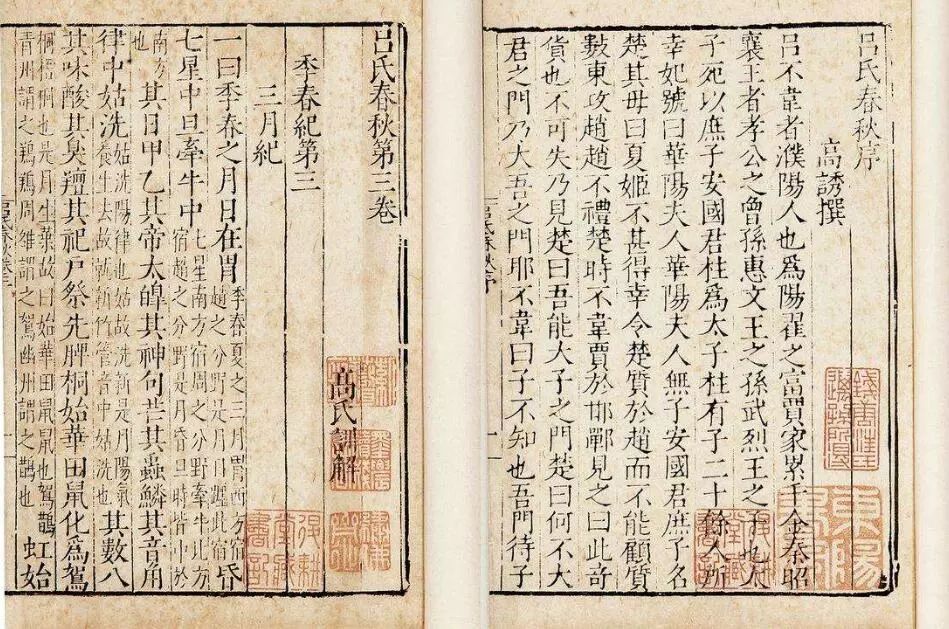 呂氏春秋序
高誘撰
呂不韋者濮陽人也爲陽翟之富賈家累千金秦昭
襄王者孝公之曾孫惠文王之孫武烈王之子也太
子死以庶子安國君柱爲太子柱有子二十餘人所
幸妃號曰華陽夫人華陽夫人無子安國君庶子名
楚其母曰夏姬不甚得幸令楚質於趙而不能顧質
數東攻趙趙不禮楚時不韋賈於邯鄲見之曰此奇
貨也不可失乃見楚曰吾能大子之門楚曰何不大
君之門乃大吾之門耶不韋曰子不知也吾門待子
呂氏春秋第三卷
高氏訓解
季春紀第三
三月紀
一曰季春之月日在胃季春夏之三月胃西方宿趙之分野是月日躔此宿昏
七星中旦牽牛中七星南方宿周之分野牽牛北方宿越之分野是月昏旦時皆中於
南方也其日甲乙其帝太皞其神句芒其蟲鱗其音角
律中姑洗姑洗陽律也姑故洗新是月陽氣養生去故就新竹管音中姑洗也其數八
其味酸其臭羶其祀戶祭先脾桐始華田鼠化爲鴽
桐梧桐也是月生葉故曰始華田鼠鼠也鴽鶉青州謂之周雒謂之鴽幽州謂之也虹始